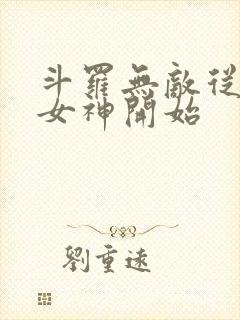 斗羅無敵從
女神開始
劉重遠